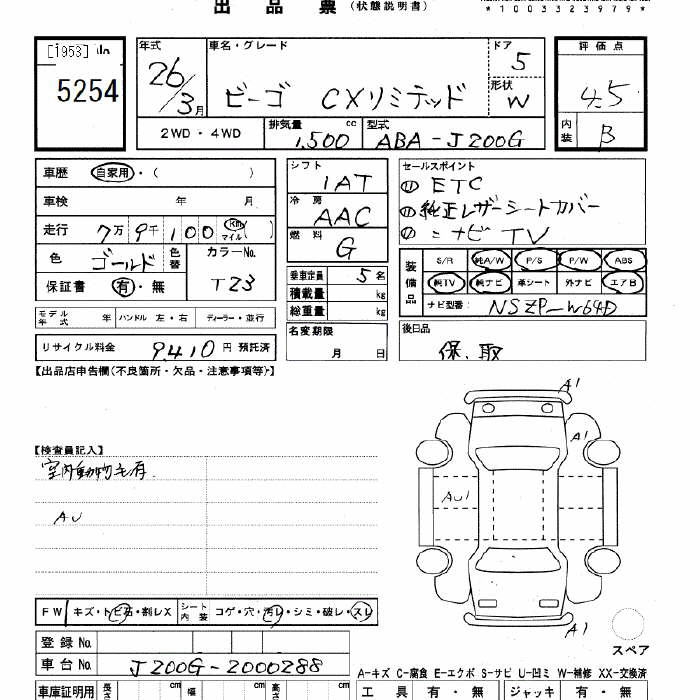 出品票 (状態説明書)
*1003323979*
[1953]
5254
年式
26/3月
車名・グレード
ビーゴ CXリミテッド
ドア
5
形状
W
2WD・4WD
排気量 cc
1,500
型式
ABA-J200G
評価点
4.5
内装
B
車歴 自家用・( )
車検 年 月
走行 7万 9千 100 Km マイル ( )
色 ゴールド 色替
カラーNo.
T23
保証書 有・無
シフト
IAT
冷房
AAC
燃料
G
乗車定員 5名
積載量 kg
総重量 kg
名変期限
月 日
セールスポイント
① ETC
② 純正レザーシートカバー
③ ナビTV
装備品
S/R 純A/W P/S P/W ABS
純TV 純ナビ 革シート 外ナビ エアB
ナビ型番: NSZP-W64D
後日品
保、取
モデル年式 年 ハンドル 左・右 ディーラー・並行
リサイクル料金 9,410円 預託済
【出品店申告欄(不良箇所・欠品・注意事項等)】
【検査員記入】
室内動物毛有
AU
A1
A1
AU1
A1
スペア
FW キズ・トビ石・割レX
シート内装 コゲ・穴・汚レ・シミ・破レ・スレ
登録No.
車台No. J200G-2000288
A-キズ C-腐食 E-エクボ S-サビ U-凹ミ W-補修 XX-交換済
車庫証明用 長さ cm 幅 cm 高さ cm
工具 有・無 ジャッキ 有・無